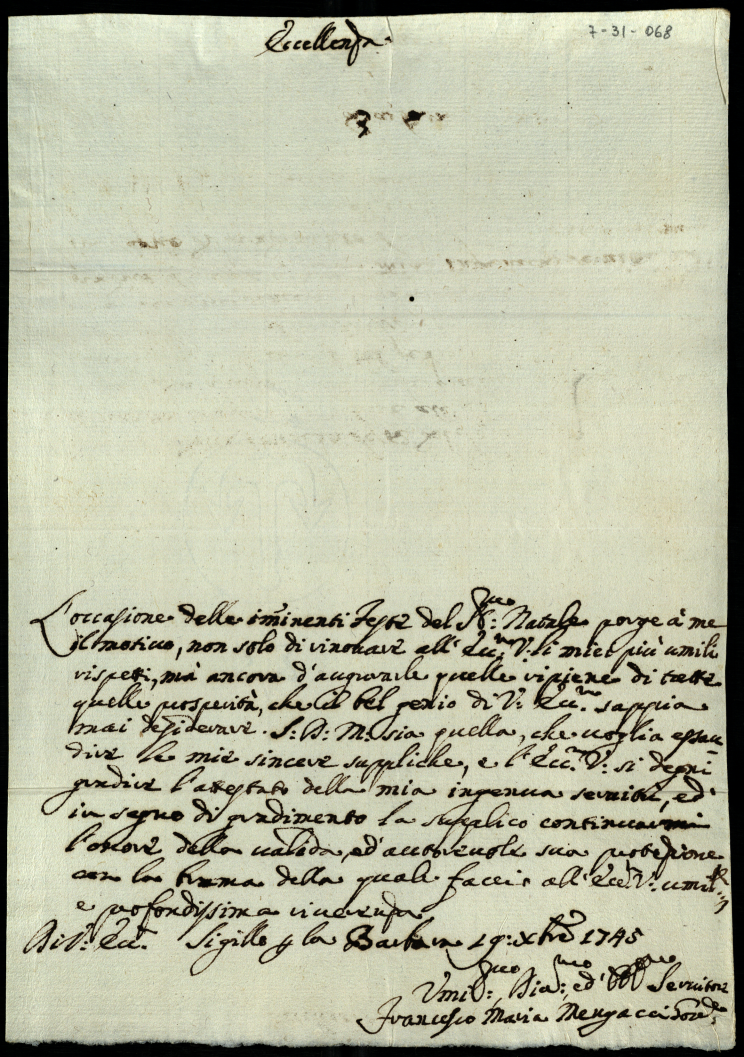 7-31-068
Eccellenza
L'occasione delle im̃inenti Feste del SS.mo Natale porge à me
il motivo, non solo di rinovare all'Ecc.za V: li miei più umili
rispetti, mà ancora d'augurarle quelle ripiene di tutte
quelle prosperità, che il bel genio di V: Ecc.za sappia
mai desiderare. S: D: M: sia quella, che voglia essau
dire le mie sincere suppliche, e l'Ecc.za V: si degni
gradire l'attestato della mia ingenua servitù, ed'
in segno di gradimento la supplico continuarmi
l'onore della valida, ed'autorevole sua protezione
con la brama della quale faccio all'Ecc.za V: umil.ma
e profondissima riverenza
Di V: Ecc.za Sigillo p la Barbara 19: Xbre 1745
Umil.mo, Div.mo, ed' Obb.mo Servitore
Francesco Maria Mengacci